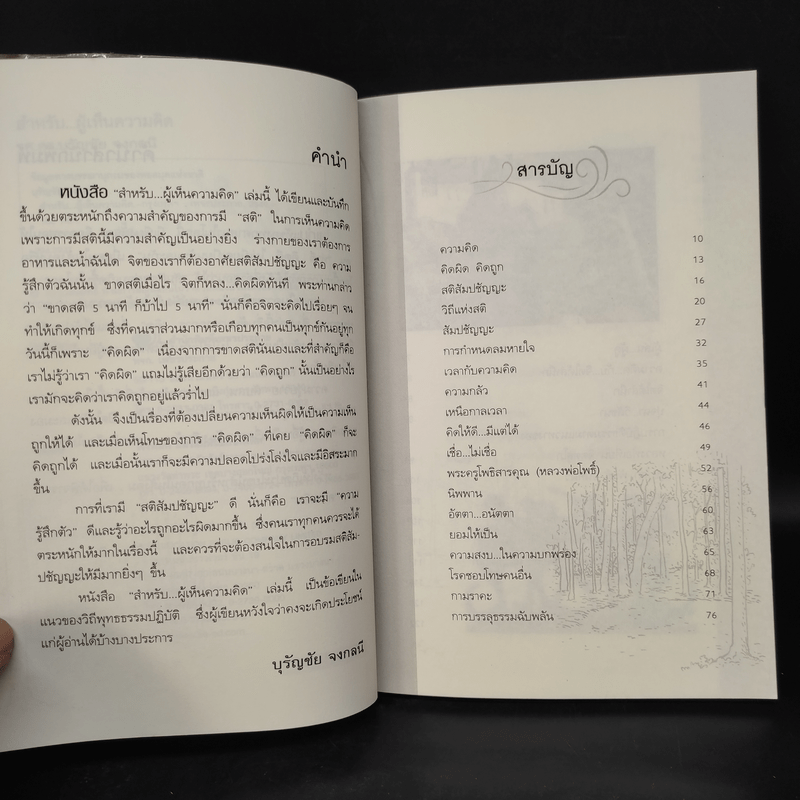 คำนำ
หนังสือ "สำหรับ...ผู้เห็นความคิด" เล่มนี้ ได้เขียนและบันทึก
ขึ้นด้วยตระหนักถึงความสำคัญของการมี "สติ" ในการเห็นความคิด
เพราะการมีสตินี้มีความสำคัญเป็นอย่างยิ่ง ร่างกายของเราต้องการ
อาหารและน้ำฉันใด จิตของเราก็ต้องอาศัยสติสัมปชัญญะ คือ ความ
รู้สึกตัวฉันนั้น ขาดสติเมื่อไร จิตก็หลง...คิดผิดทันที พระท่านกล่าว
ว่า "ขาดสติ 5 นาที ก็บ้าไป 5 นาที" นั่นก็คือจิตจะคิดไปเรื่อยๆ จน
ทำให้เกิดทุกข์ ซึ่งที่คนเราส่วนมากหรือเกือบทุกคนเป็นทุกข์กันอยู่ทุก
วันนี้ก็เพราะ "คิดผิด" เนื่องจากการขาดสตินั่นเองและที่สำคัญก็คือ
เราไม่รู้ว่าเรา "คิดผิด" แถมไม่รู้เสียอีกด้วยว่า "คิดถูก" นั้นเป็นอย่างไร
เรามักจะคิดว่าเราคิดถูกอยู่แล้วร่ำไป
ดังนั้น จึงเป็นเรื่องที่ต้องเปลี่ยนความเห็นผิดให้เป็นความเห็น
ถูกให้ได้ และเมื่อเห็นโทษของการ "คิดผิด" ที่เคย "คิดผิด" ก็จะ
คิดถูกได้ และเมื่อนั้นเราก็จะมีความปลอดโปร่งโล่งใจและมีอิสระมาก
ขึ้น
การที่เรามี "สติสัมปชัญญะ" ดี นั่นก็คือ เราจะมี "ความ
รู้สึกตัว" ดีและรู้ว่าอะไรถูกอะไรผิดมากขึ้น ซึ่งคนเราทุกคนควรจะได้
ตระหนักให้มากในเรื่องนี้ และควรที่จะต้องสนใจในการอบรมสติสัม-
ปชัญญะให้มีมากยิ่งๆ ขึ้น
หนังสือ "สำหรับ...ผู้เห็นความคิด" เล่มนี้ เป็นข้อเขียนใน
แนวของวิถีพุทธธรรมปฏิบัติ ซึ่งผู้เขียนหวังใจว่าคงจะเกิดประโยชน์
แก่ผู้อ่านได้บ้างบางประการ
บุรัญชัย จงกลนี
สารบัญ
ความคิด 10
คิดผิด คิดถูก 13
สติสัมปชัญญะ 16
วิถีแห่งสติ 20
สัมปชัญญะ 27
การกำหนดลมหายใจ 32
เวลากับความคิด 35
ความกลัว 41
เหนือกาลเวลา 44
คิดให้ดี...มีแต่ได้ 46
เชื่อ...ไม่เชื่อ 49
พระครูโพธิสารคุณ (หลวงพ่อโพธิ์) 52
นิพพาน 56
อัตตา...อนัตตา 60
ยอมให้เป็น 63
ความสงบ...ในความบกพร่อง 65
โรคชอบโทษคนอื่น 68
กามราคะ 71
การบรรลุธรรมฉับพลัน 76